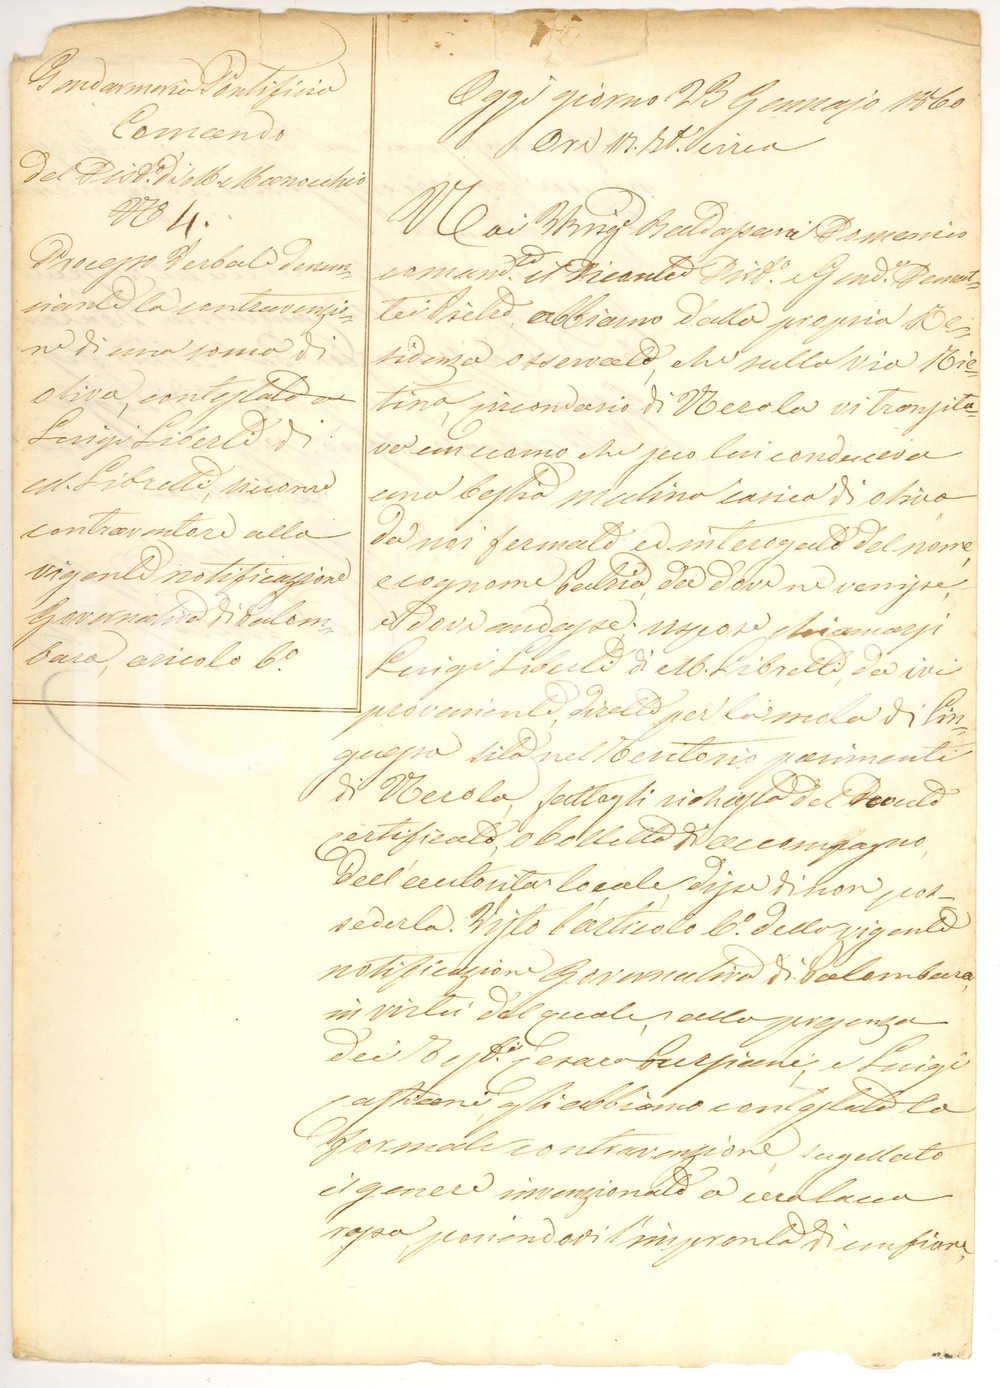 Gendarmeria Pontificia
Comando
del Dist.o di M.e Manocchio
N.o 4.
Processo Verbale denun-
ciante la contravenzio-
ne di una soma di
oliva, contestata a
Luigi Liberti di
M. Libretti, siccome
contraventore alla
vigente notificazione
Governativa di Palom-
bara, articolo 6.o
Oggi giorno 23 Gennajo 1860
Ore circa
Noi Brig.e Baldassarri Domenico
comand.te il Distto. e Gend.e
Pietro, abbiamo dalla propria Re-
sidenza osservato, che sulla via Rie-
tina, circondario di Nerola vi transita-
va un uomo che seco lui conduceva
una bestia mulina carica di oliva
da noi fermato ed interogato del nome,
e cognome, patria, da dove ne venisse,
et dove andasse; rispose chiamarsi
Luigi Liberti di M. Libretti, da ivi
proveniente, diretto per la mola di Cin-
quessa sita nel Teritorio parimenti
di Nerola, fattogli richiesta del
certificato, o bolletta di accompagno,
dell'autorita locale, disse di non pos-
sederla. Visto l'articolo 6.o della vigente
notificazione Governativa di Palombara,
in virtù del quale, alla presenza
dei Test.i Cesare e Luigi
gli abbiamo contestato la
formale contravenzione, sugellato
il genere invenzionato a ceralacca
rossa, ponendovi l'impronta di un fiore,